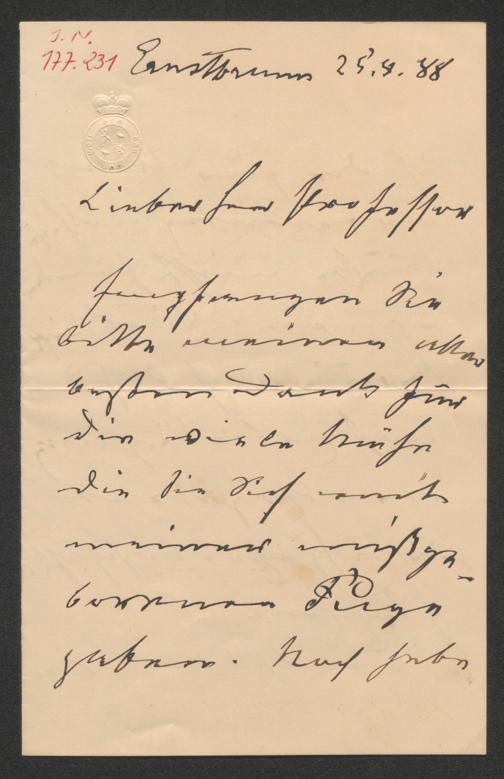 I. N.
177.231
Ernstbrunn 25.4.88
Lieber Herr Professor
Empfangen Sie
bitte meinen aller
besten Dank für
die viele Mühe
die Sie Sich mit
meiner mißge-
borenen Fuge
geben. Noch habe